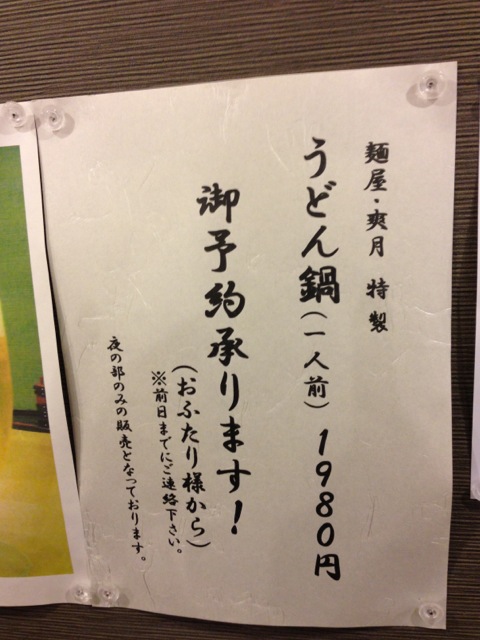 麺屋・爽月 特製
うどん鍋(一人前) 1980円
御予約承ります!
(おふたり様から)
※前日までにご連絡下さい。
夜の部のみの販売となっております。